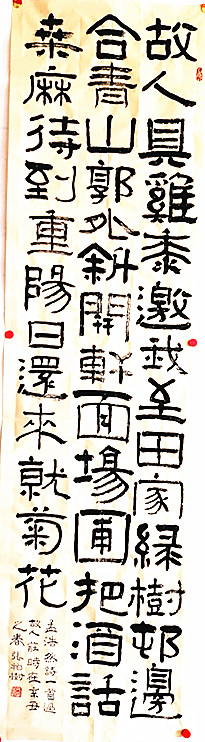 故人具雞黍邀我至田家綠樹邨邊
合青山郭外斜開軒面場圃把酒話
桑麻待到重陽日還來就菊花
孟浩然詩一首過
故人莊時在辛丑
之春張